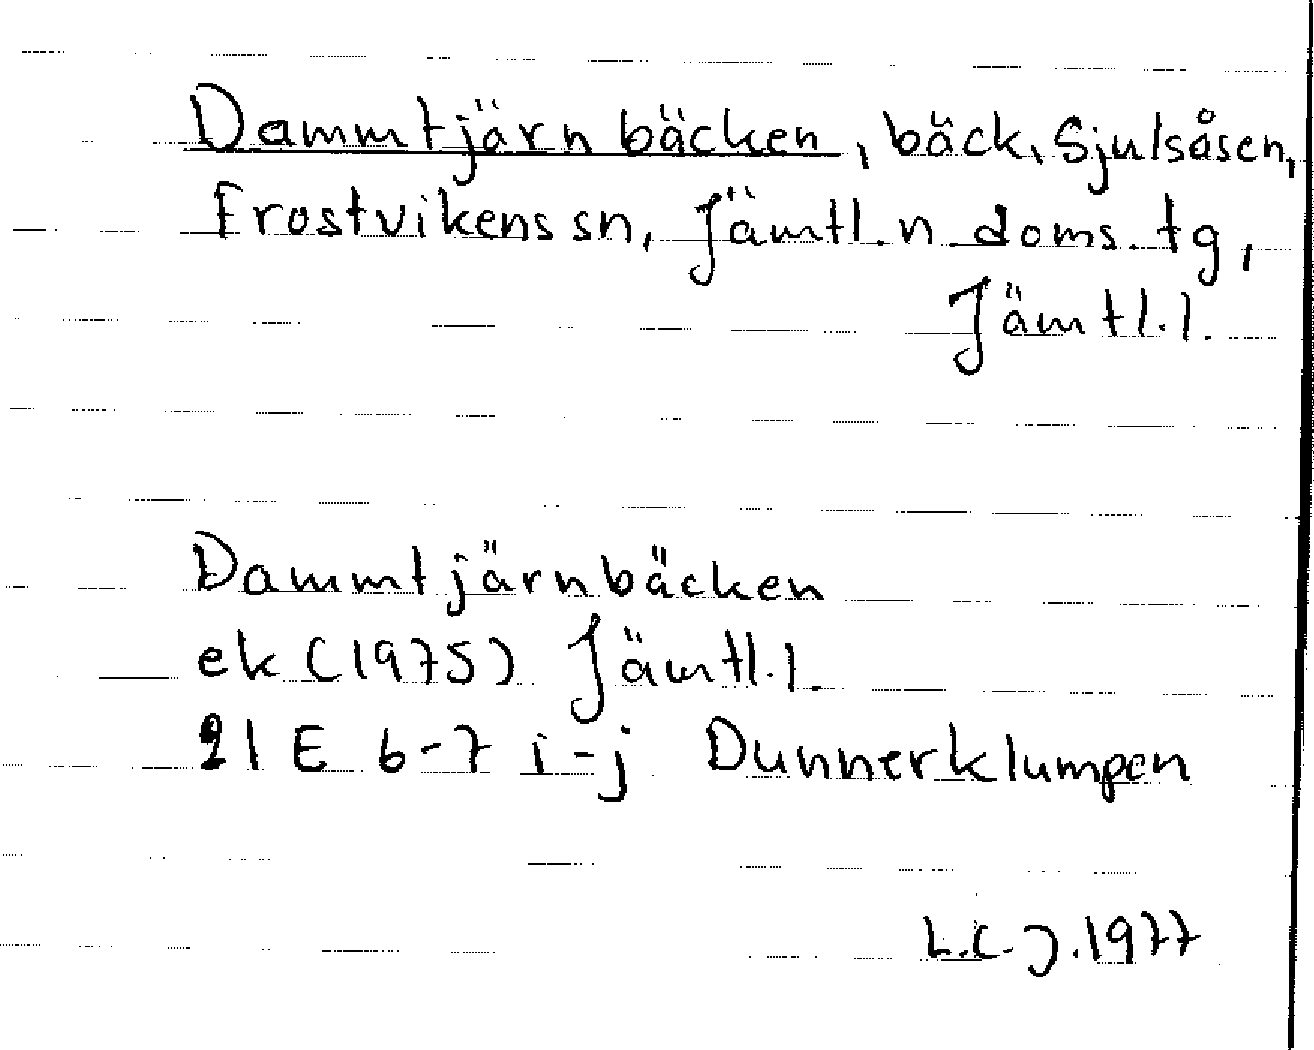 Dammtjärnbäcken, bäck, Sjulsåsen,
Frostvikens sn, Jämtl.n doms.tg,
Jämtl.l.
Dammtjärnbäcken
ek (1975) Jämtl.l.
21 E 6-7 i-j Dunnerklumpen
L.C.J. 1977